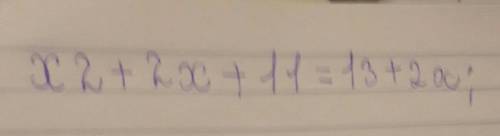 x2 + 2x + 11 = 13 + 2x;